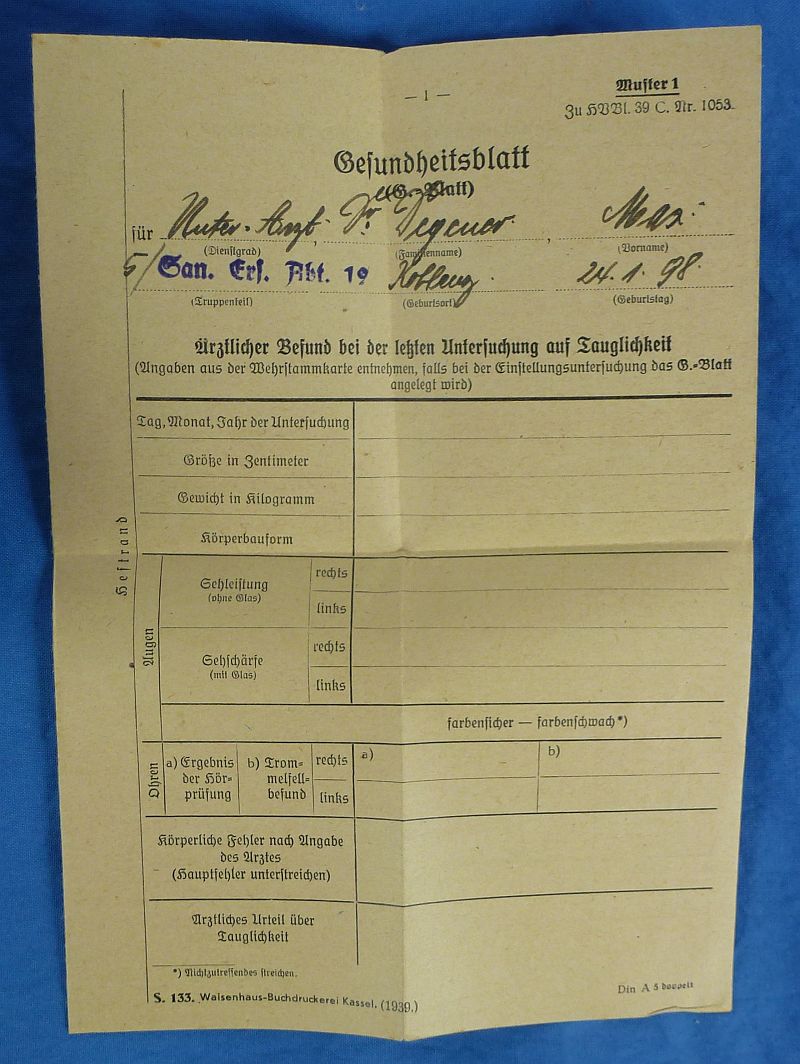 — 1 —
Muster 1
Zu HVBl. 39 C. Nr. 1053
Gesundheitsblatt
(G.-Blatt)
für Unter-Arzt, Dr. Wegener, Max
(Dienstgrad) (Familienname) (Vorname)
5/San. Ers. Abt. 19 Koblenz 24.1.98.
(Truppenteil) (Geburtsort) (Geburtstag)
Ärztlicher Befund bei der letzten Untersuchung auf Tauglichkeit
(Angaben aus der Wehrstammkarte entnehmen, falls bei der Einstellungsuntersuchung das G.-Blatt
angelegt wird)
Tag, Monat, Jahr der Untersuchung
Größe in Zentimeter
Gewicht in Kilogramm
Körperbauform
Heftrand
Augen
Sehleistung
(ohne Glas)
rechts
links
Sehschärfe
(mit Glas)
rechts
links
farbensicher — farbenschwach*)
Ohren
a) Ergebnis
der Hör-
prüfung
b) Trom-
melfell-
befund
rechts
links
a)
b)
Körperliche Fehler nach Angabe
des Arztes
(Hauptfehler unterstreichen)
Ärztliches Urteil über
Tauglichkeit
*) Nichtzutreffendes streichen.
S. 133. Waisenhaus-Buchdruckerei Kassel. (1939.)
Din A 5 doppelt